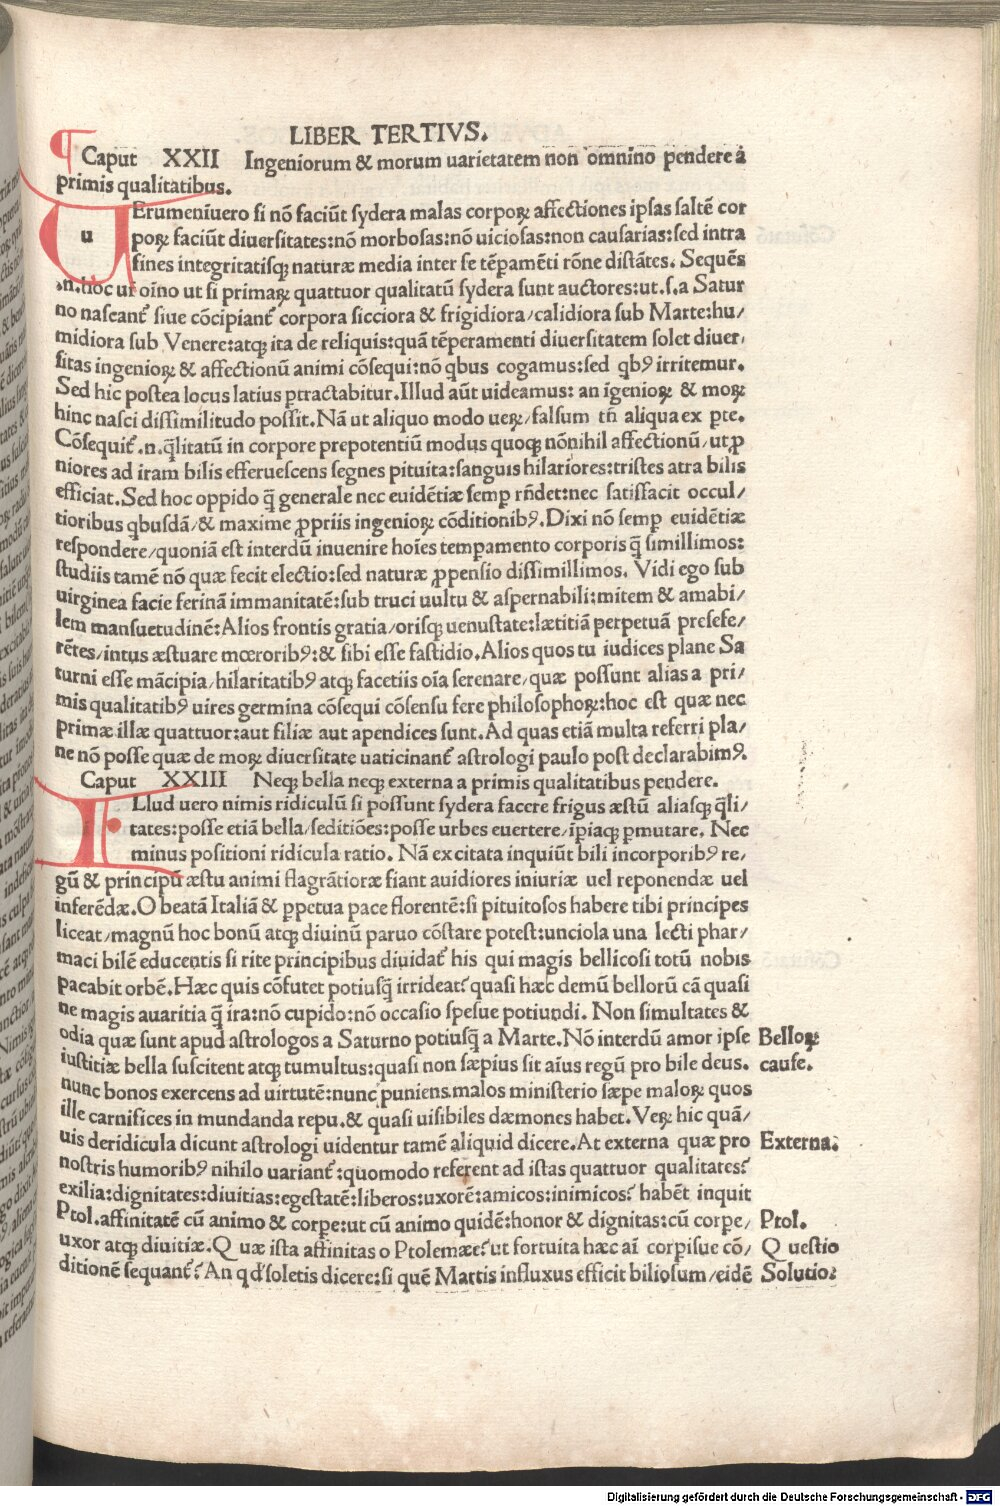 LIBER TERTIVS.
Caput XXII Ingeniorum & morum uarietatem non omnino pendere á
primis qualitatibus.
uErumeniuero si nõ faciũt sydera malas corporꝝ affectiones ipsas saltẽ cor
poꝝ faciũt diuersitates:nõ morbosas:nõ uiciosas:non causarias:sed intra
fines integritatisq; naturæ media inter se tẽpamẽti rõne distãtes. Sequẽs
.n.hoc ur oĩno ut si primaꝝ quattuor qualitatũ sydera sunt auctores:ut.s.a Satur
no nascant᷑ siue cõcipiant᷑ corpora sicciora & frigidiora/calidiora sub Marte:hu/
midiora sub Venere:atq; ita de reliquis:quã tẽperamenti diuersitatem solet diuer,
sitas ingenioꝝ & affectionũ animi cõsequi:nõ qbus cogamus:sed qbꝰ irritemur.
Sed hic postea locus latius ptractabitur.Illud aũt uideamus: an ĩgenioꝝ & moꝝ
hinc nasci dissimilitudo possit.Nã ut aliquo modo ueꝝ/falsum tñ aliqua ex pte.
Cõsequit᷑.n.q̃litatũ in corpore prepotentiũ modus quoq; nõnihil affectionũ/ut ꝓ
niores ad iram bilis efferuescens segnes pituita:sanguis hilariores:tristes atra bilis
efficiat.Sed hoc oppido q̃ generale nec euidẽtiæ semp rñdet:nec satisfacit occul/
tioribus qbusdã/& maxime ꝓpriis ingenioꝝ cõditionibꝰ.Dixi nõ semp euidẽtiæ
respondere/quoniã est interdũ inuenire hoĩes tempamento corporis q̃ simillimos:
studiis tamẽ nõ quæ fecit electio:sed naturæ ꝓpensio dissimillimos. Vidi ego sub
uirginea facie ferinã immanitatẽ:sub truci uultu & aspernabili:mitem & amabi/
lem mansuetudinẽ:Alios frontis gratia/orisq; uenustate:lætitiã perpetuã presefe/
rẽtes/intus æstuare mœroribꝰ:& sibi esse fastidio.Alios quos tu iudices plane Sa
turni esse mãcipia/hilaritatibꝰ atq; facetiis oĩa serenare/quæ possunt alias a pri/
mis qualitatibꝰ uires germina cõsequi cõsensu fere philosophoꝝ:hoc est quæ nec
primæ illæ quattuor:aut filiæ aut apendices sunt.Ad quas etiã multa referri pla/
ne nõ posse quæ de moꝝ diuersitate uaticinant᷑ astrologi paulo post declarabimꝰ.
Caput XXIII Neq; bella neq; externa a primis qualitatibus pendere.
ILlud uero nimis ridiculũ si possunt sydera facere frigus æstũ aliasq; q̃li/
tates:posse etiã bella/seditiões:posse urbes euertere/ĩpiaq; pmutare. Nec
minus positioni ridicula ratio. Nã excitata inquiũt bili incorporibꝰ re/
gũ & principũ æstu animi flagrãtioræ fiant auidiores iniuriæ uel reponendæ uel
inferẽdæ.O beatã Italiã & ppetua pace florentẽ:si pituitosos habere tibi principes
liceat/magnũ hoc bonũ atq; diuinũ paruo cõstare potest:unciola una lecti phar/
maci bilẽ educentis si rite principibus diuidat᷑ his qui magis bellicosi totũ nobis
pacabit orbẽ.Hæc quis cõfutet potiusq̃ irrideat᷑ quasi hæc demũ bellorũ cã quasi
ne magis auaritia q̃ ira:nõ cupido:nõ occasio spesue potiundi. Non simultates &
odia quæ sunt apud astrologos a Saturno potiusq̃ a Marte.Nõ interdũ amor ipse
iustitiæ bella suscitent atq; tumultus:quasi non sæpius sit aĩus regũ pro bile deus.
nunc bonos exercens ad uirtutẽ:nunc puniens malos ministerio sæpe maloꝝ quos
ille carnifices in mundanda repu.& quasi uisibiles dæmones habet.Veꝝ hic quã/
uis deridicula dicunt astrologi uidentur tamẽ aliquid dicere.At externa quæ pro
nostris humoribꝰ nihilo uariant᷑:quomodo referent ad istas quattuor qualitates?
exilia:dignitates:diuitias:egestatẽ:liberos:uxorẽ:amicos:inimicos? habẽt inquit
Ptol.affinitatẽ cũ animo & corpe:ut cũ animo quidẽ:honor & dignitas:cũ corpe/
uxor atq; diuitiæ.Quæ ista affinitas o Ptolemæe?ut fortuita hæc aĩ corpisue cõ/
ditionẽ sequant᷑? An qđ soletis dicere:si quẽ Martis influxus efficit biliosum/eidẽ
Belloꝝ
cause.
Externa:
Ptol.
Questio
Solutio:
Digitalisierung gefördert durch die Deutsche Forschungsgemeinschaft - DFG